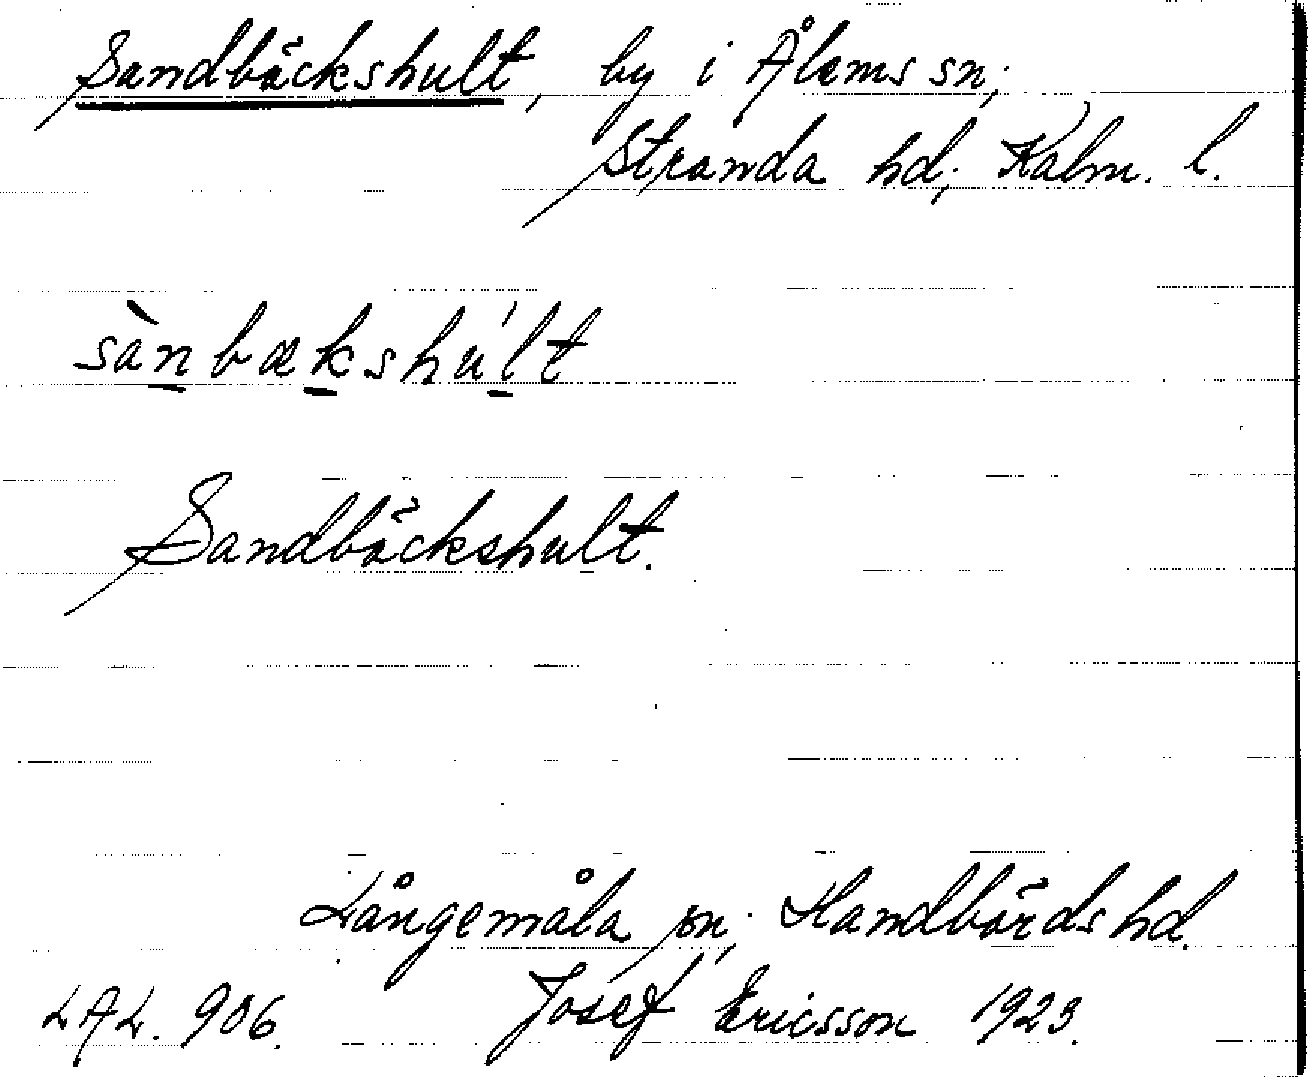 Sandbäckshult, by i Ålems sn,
Stranda hd, Kalm. l.
sànbækshúlt
Sandbäckshult.
Långemåla sn, Handbörds hd.
LAL. 906. Josef Ericsson 1923.